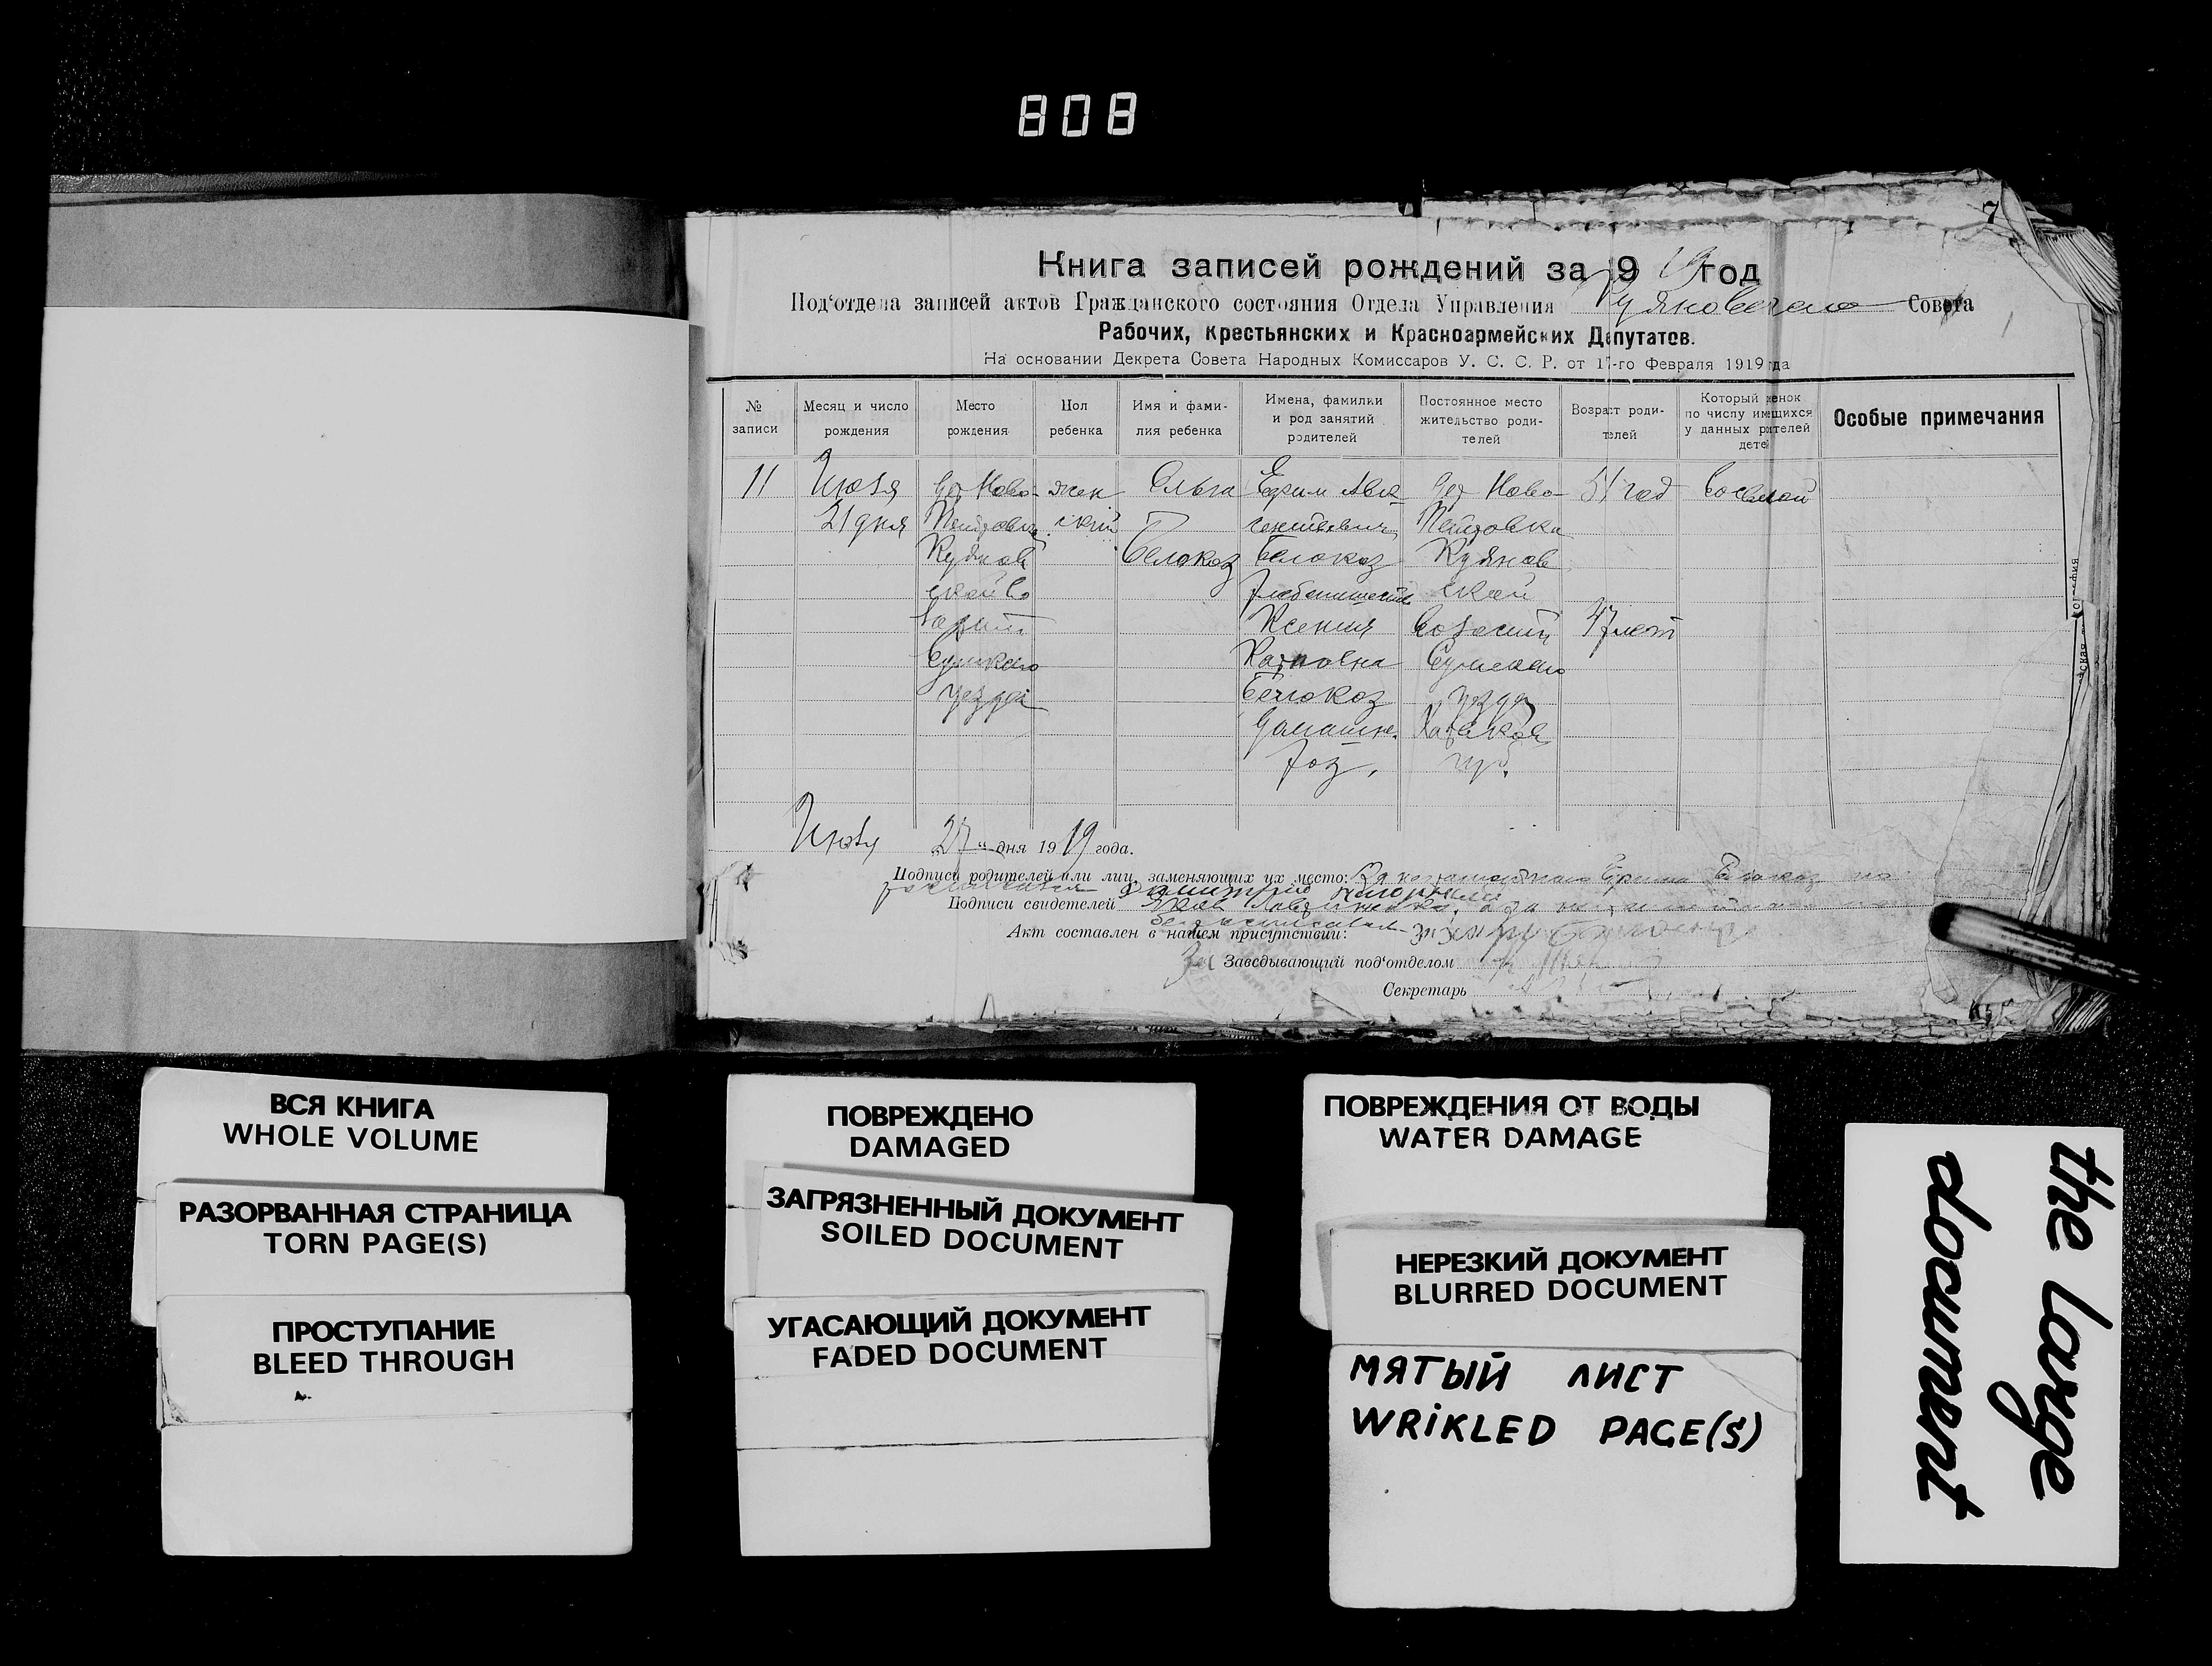 808
7
Книга записей рождений за 1919 год
Под'отдела записей актов Гражданского состояния Отдела Управления Куяновского Совета
Рабочих, Крестьянских и Красноармейских Депутатов.
На основании Декрета Совета Народных Комиссаров У. С. С. Р. от 17-го Февраля 1919 года
№ записи
Месяц и число рождения
Место рождения
Пол ребенка
Имя и фамилия ребенка
Имена, фамилии и род занятий родителей
Постоянное место жительство родителей
Возраст родителей
Который ребенок по числу имеющихся у данных родителей детей
Особые примечания
11
Июля
21 дня
дер Ново-
Куянов
ской Во
Сумского
уезда
жен
ский
Ольга
Белокоз
Ефим
Белокоз
Ксения
Карповна
Белокоз
домашн.
хоз.
дер Ново-
Петровка
Куянов
ской
Волости
Сумского
уезда
Харьков
губ.
51 год
47 лет
Восьмой
Июля 27 дня 1919 года.
Подписи родителей или лиц, заменяющих их место:
Подписи свидетелей
Акт составлен в нашем присутствии:
За Заведывающий под'отделом
Секретарь
ВСЯ КНИГА
WHOLE VOLUME
РАЗОРВАННАЯ СТРАНИЦА
TORN PAGE(S)
ПРОСТУПАНИЕ
BLEED THROUGH
ПОВРЕЖДЕНО
DAMAGED
ЗАГРЯЗНЕННЫЙ ДОКУМЕНТ
SOILED DOCUMENT
УГАСАЮЩИЙ ДОКУМЕНТ
FADED DOCUMENT
ПОВРЕЖДЕНИЯ ОТ ВОДЫ
WATER DAMAGE
НЕРЕЗКИЙ ДОКУМЕНТ
BLURRED DOCUMENT
МЯТЫЙ ЛИСТ
WRIKLED PAGE(S)
the large
document